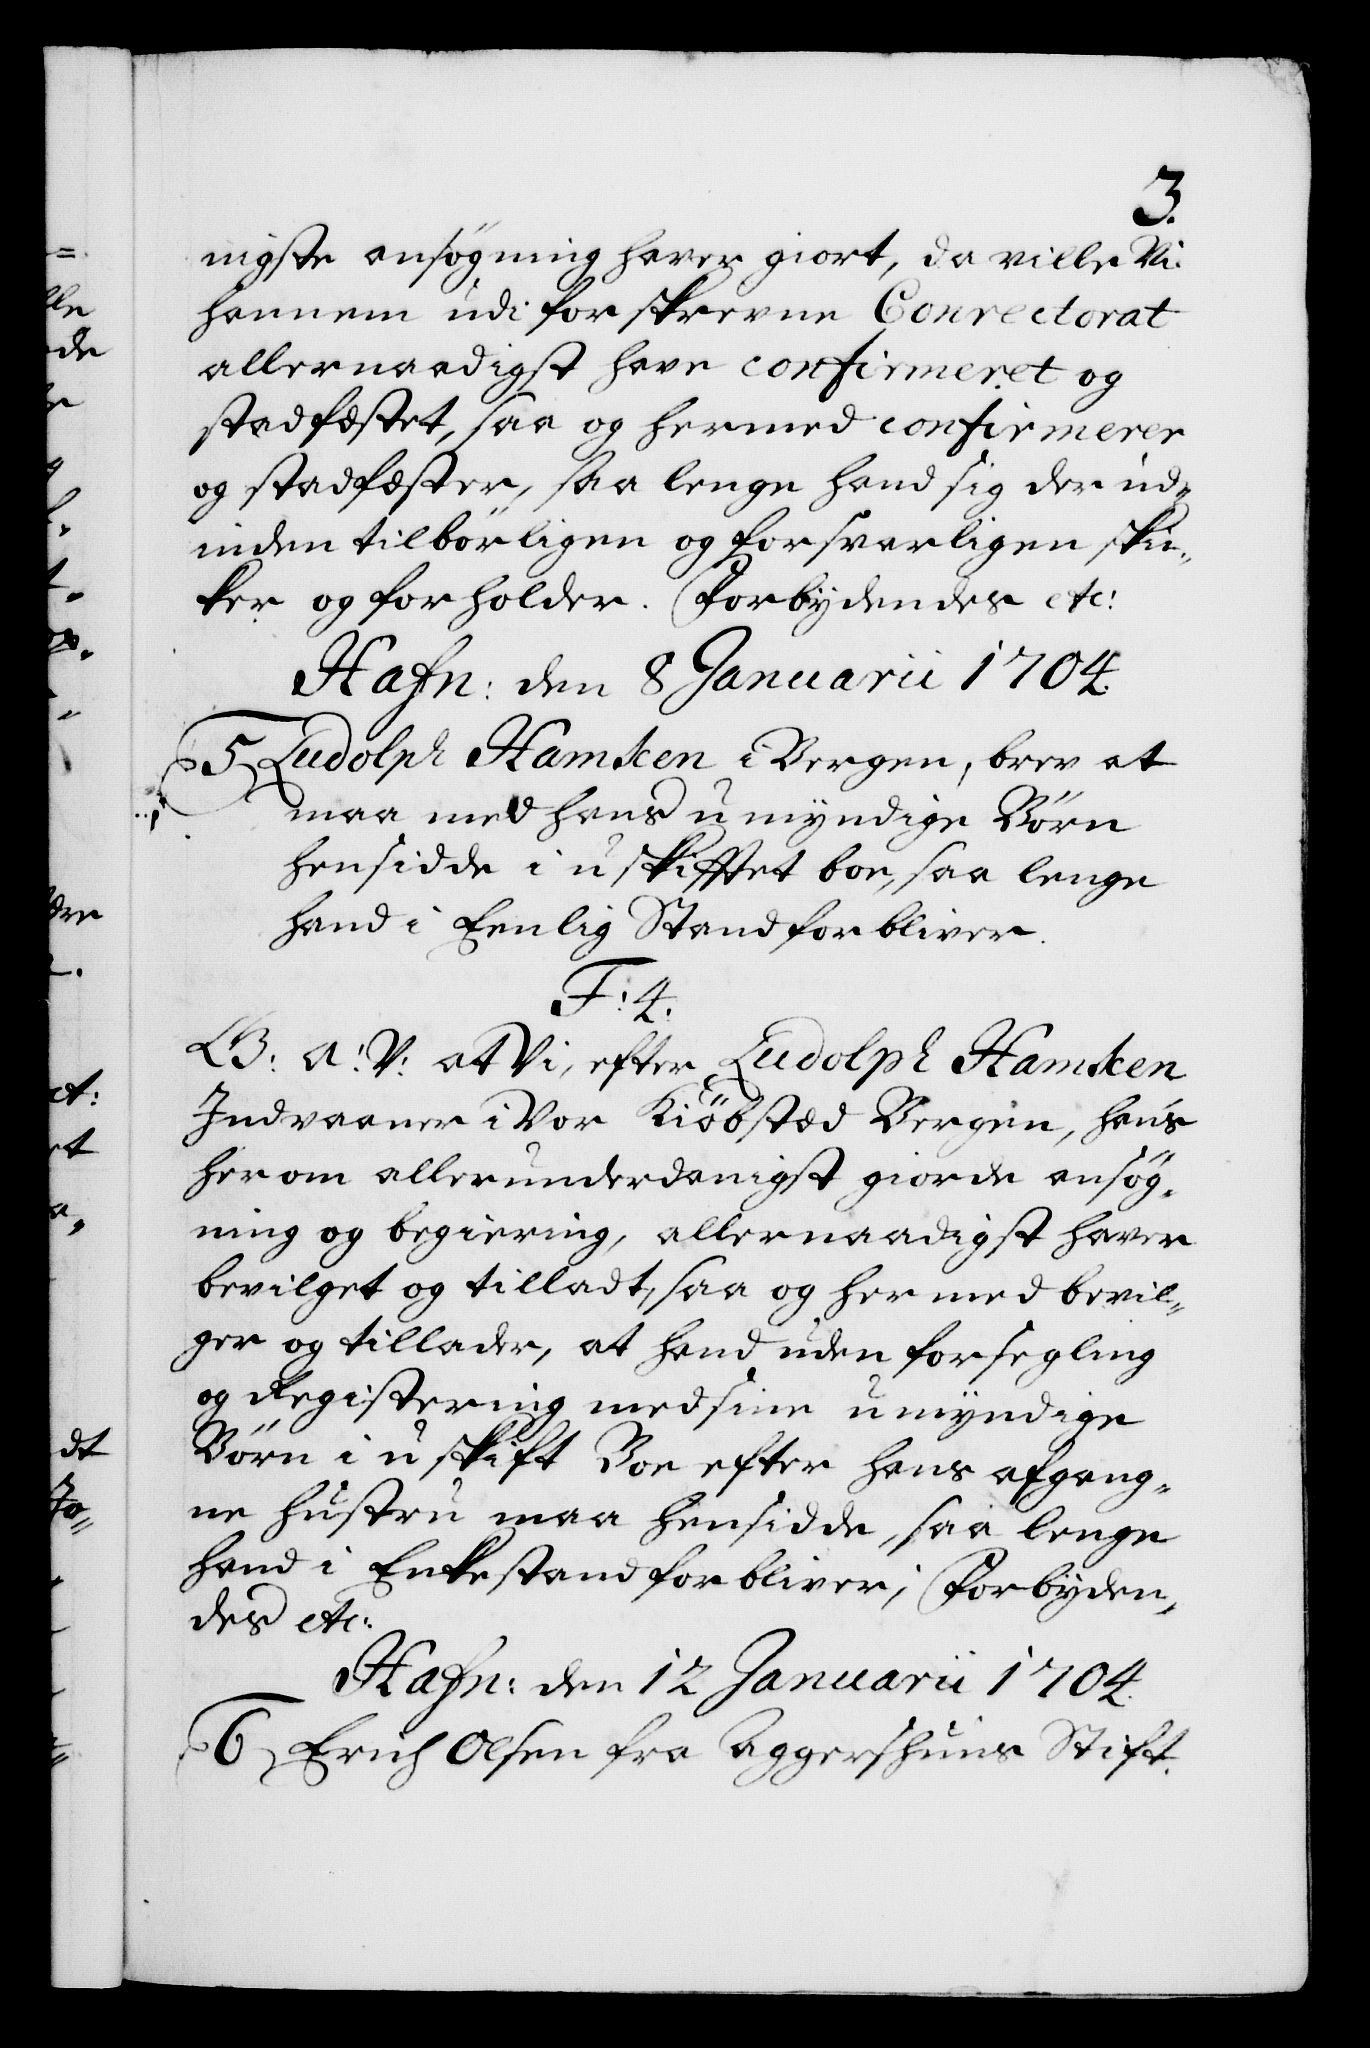 3.
nigste ansøgning haver giort, da ville Vi
hannem udi forskrevne Conrectorat
allernaadigst have confirmeret og
stadfæstet, saa og hermed confirmerer
og stadfæster, saa lenge hand sig der ud„
inden tilbørligen og forsvarligen skic„
ker og forholder. Forbydendes etc:
Hafn: den 8 Januarii 1704.
5 Ludolph Hamken i Bergen, brev at
maa med hans umyndige Børn
hensidde i uskifftet boe, saa lenge
hand i Eenlig Stand forbliver.
F: 4.
G: A: V: at Vi, efter Ludolph Hamken
Indvaaner i Vor Kiøbsted Bergen, hans
herom allerunderdanigst giorde ansøg„
ning og begiering, allernaadigst haver
bevilget og tilladt, saa og hermed bevil„
ger og tillader, at hand uden forsegling
og Registering med sine umyndige
Børn i uskift Boe efter hans afgang„
ne hustru maa hensidde, saa lenge
hand i Enkestand forbliver; Forbyden„
des etc:
Hafn: den 12 Januarii 1704.
6 Erich Olsen fra Aggershuus Stift.